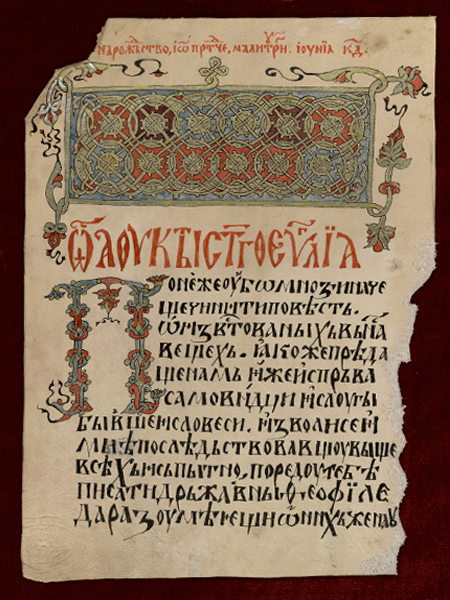 На рожⷣьство, іѡⷩ҇ прⷣтче, мⷭ҇ца ітриⷩ҇. іоунїа к҃д.
Ѿ лоукы ст҃го еѵⷢ҇лїѧ
Понеже оубѡ мноꙁи наче
ше чинити повѣсть.
ѡ иꙁвѣстованыхъ въ на
вещехъ. ꙗкоже прѣда
ше намъ иже испръва
самовидци и слоугы
бывше и словеси. иꙁволисе и
мнѣ послѣдьствовавшоу выше
всѣхъ испытно. по редоу тебѣ
писати дръжавныи ѳеофіле
да раꙁоумѣеши ѡ нихъже нау